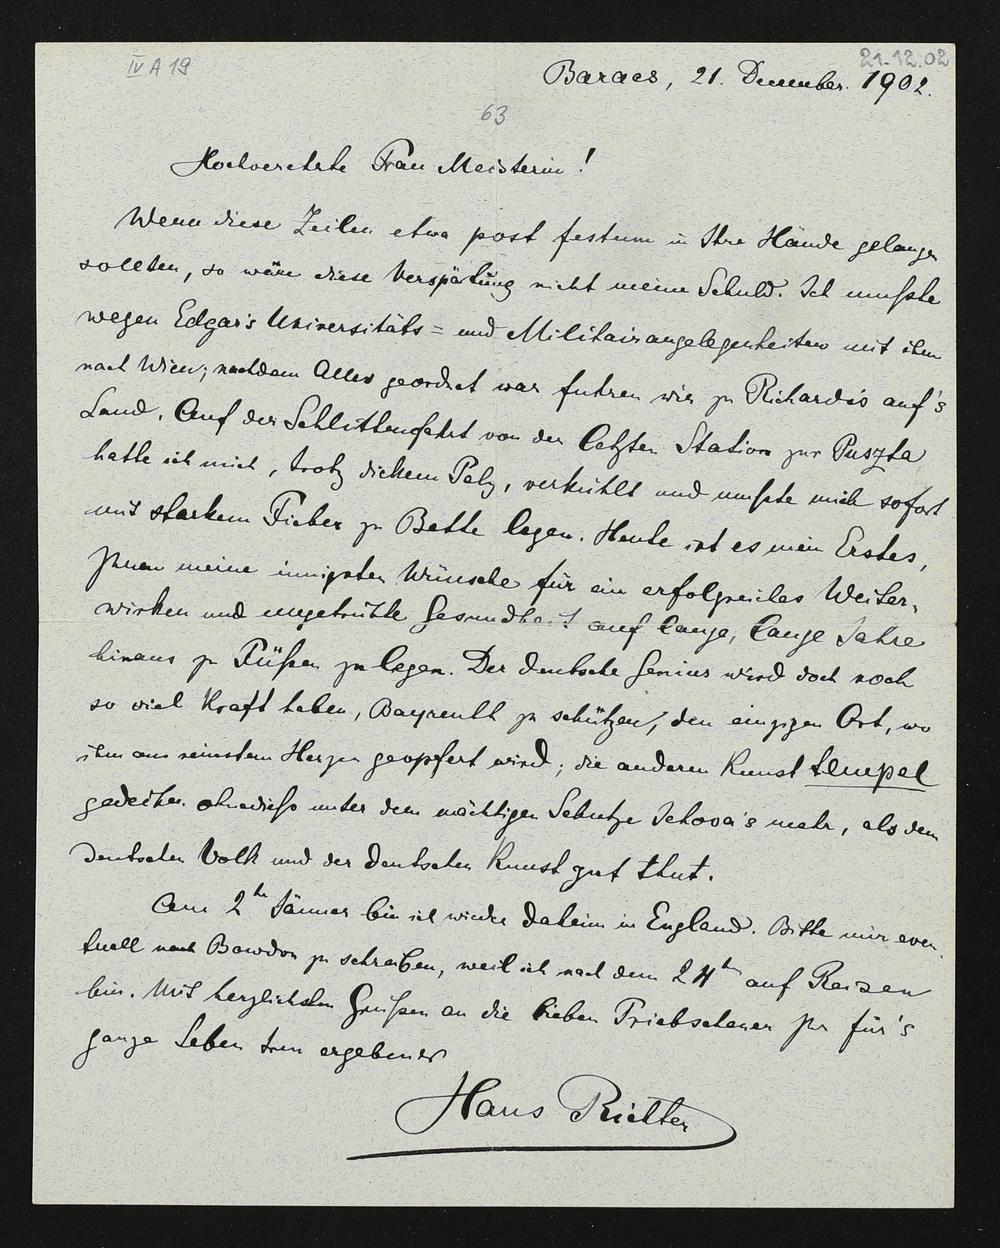 IV A 19
21.12.02
Baracs, 21. Dezember. 1902.
63
Hochverehrte Frau Meisterin!
Wenn diese Zeilen etwa post festum in Ihre Hände gelangen
sollten, so wäre diese Verspätung nicht meine Schuld. Ich mußte
wegen Edgar's Universitäts= und Militairangelegenheiten mit ihm
nach Wien; nachdem Alles geordnet war fuhren wir zu Richardis auf's
Land. Auf der Schlittenfahrt von der letzten Station zur Puszta
hatte ich mich, trotz dickem Pelz, verkühlt und mußte mich sofort
mit starkem Fieber zu Bette legen. Heute ist es mein Erstes,
Ihnen meine innigsten Wünsche für ein erfolgreiches Weiter-
wirken und ungetrübte Gesundheit auf lange, lange Jahre
hinaus zu Füßen zu legen. Der deutsche Genius wird doch noch
so viel Kraft haben, Bayreuth zu schützen, den einzigen Ort, wo
ihm aus reinstem Herzen geopfert wird; die anderen Kunsttempel
gedeihen ohnedieß unter dem mächtigen Schutze Jehova's mehr, als dem
deutschen Volk und der deutschen Kunst gut thut.
Am 2ten Jänner bin ich wieder daheim in England. Bitte mir even-
tuell nach Bowdon zu schreiben, weil ich nach dem 24ten auf Reisen
bin. Mit herzlichsten Grüßen an die lieben Triebschener Ihr für's
ganze Leben treu ergebener
Hans Richter